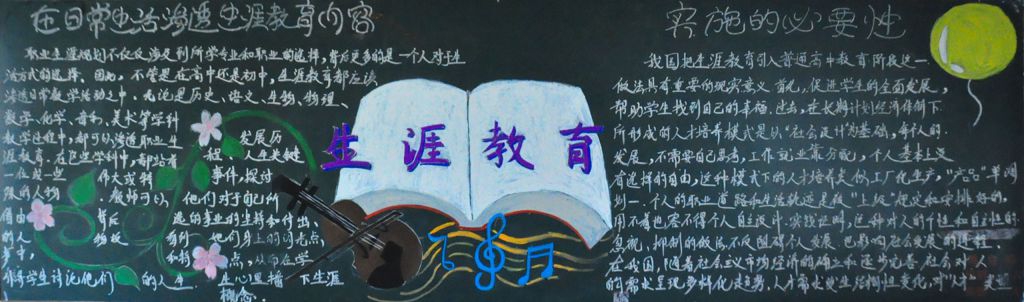 在日常生活渗透生涯教育内容
职业生涯规划不仅仅涉及到所学专业和职业的选择，背后更多的是一个人对生
活方式的选择。因此，不管是在高中还是初中，生涯教育都应该
渗透日常教学活动之中。无论是历史、语文、生物、物理、
数学、化学、音乐、美术等学科
教学过程中，都可以渗透职业生
涯教育。在这些学科中，都站着
伟大或
的人物，教师可以
背后
的人
梦中，
引导学生讨论他们的人生
发展历
程、人生关键
事件，探讨
他们对于自己所
选的事业的坚持和付出，
他们身上的闪光点
和特点，从而在学
生心里播下生涯
概念。
生涯教育
实施的必要性
我国把生涯教育引入普通高中教育阶段这一
做法具有重要的现实意义。首先，促进学生的全面发展，
帮助学生找到自己的幸福。过去，在长期计划经济体制下
所形成的人才培养模式是以"社会设计"为基础，每个人的
发展，不需要自己思考，工作就业靠分配，个人基本上没
有选择的自由，这种模式下的人才培养类似工厂化生产，"产品"单调
划一。个人的职业道路和生活轨迹是被"上级"规定和安排好的，
用不着也容不得个人自主设计。实践证明，这种对人的个性和自主性的
忽视、抑制的做法，不仅阻碍个人发展，也影响社会发展的进程。
在我国，随着社会主义市场经济的确立和逐步完善，社会对人
的需求呈现多样化走势，人才需求发生结构性变化，对"人才"